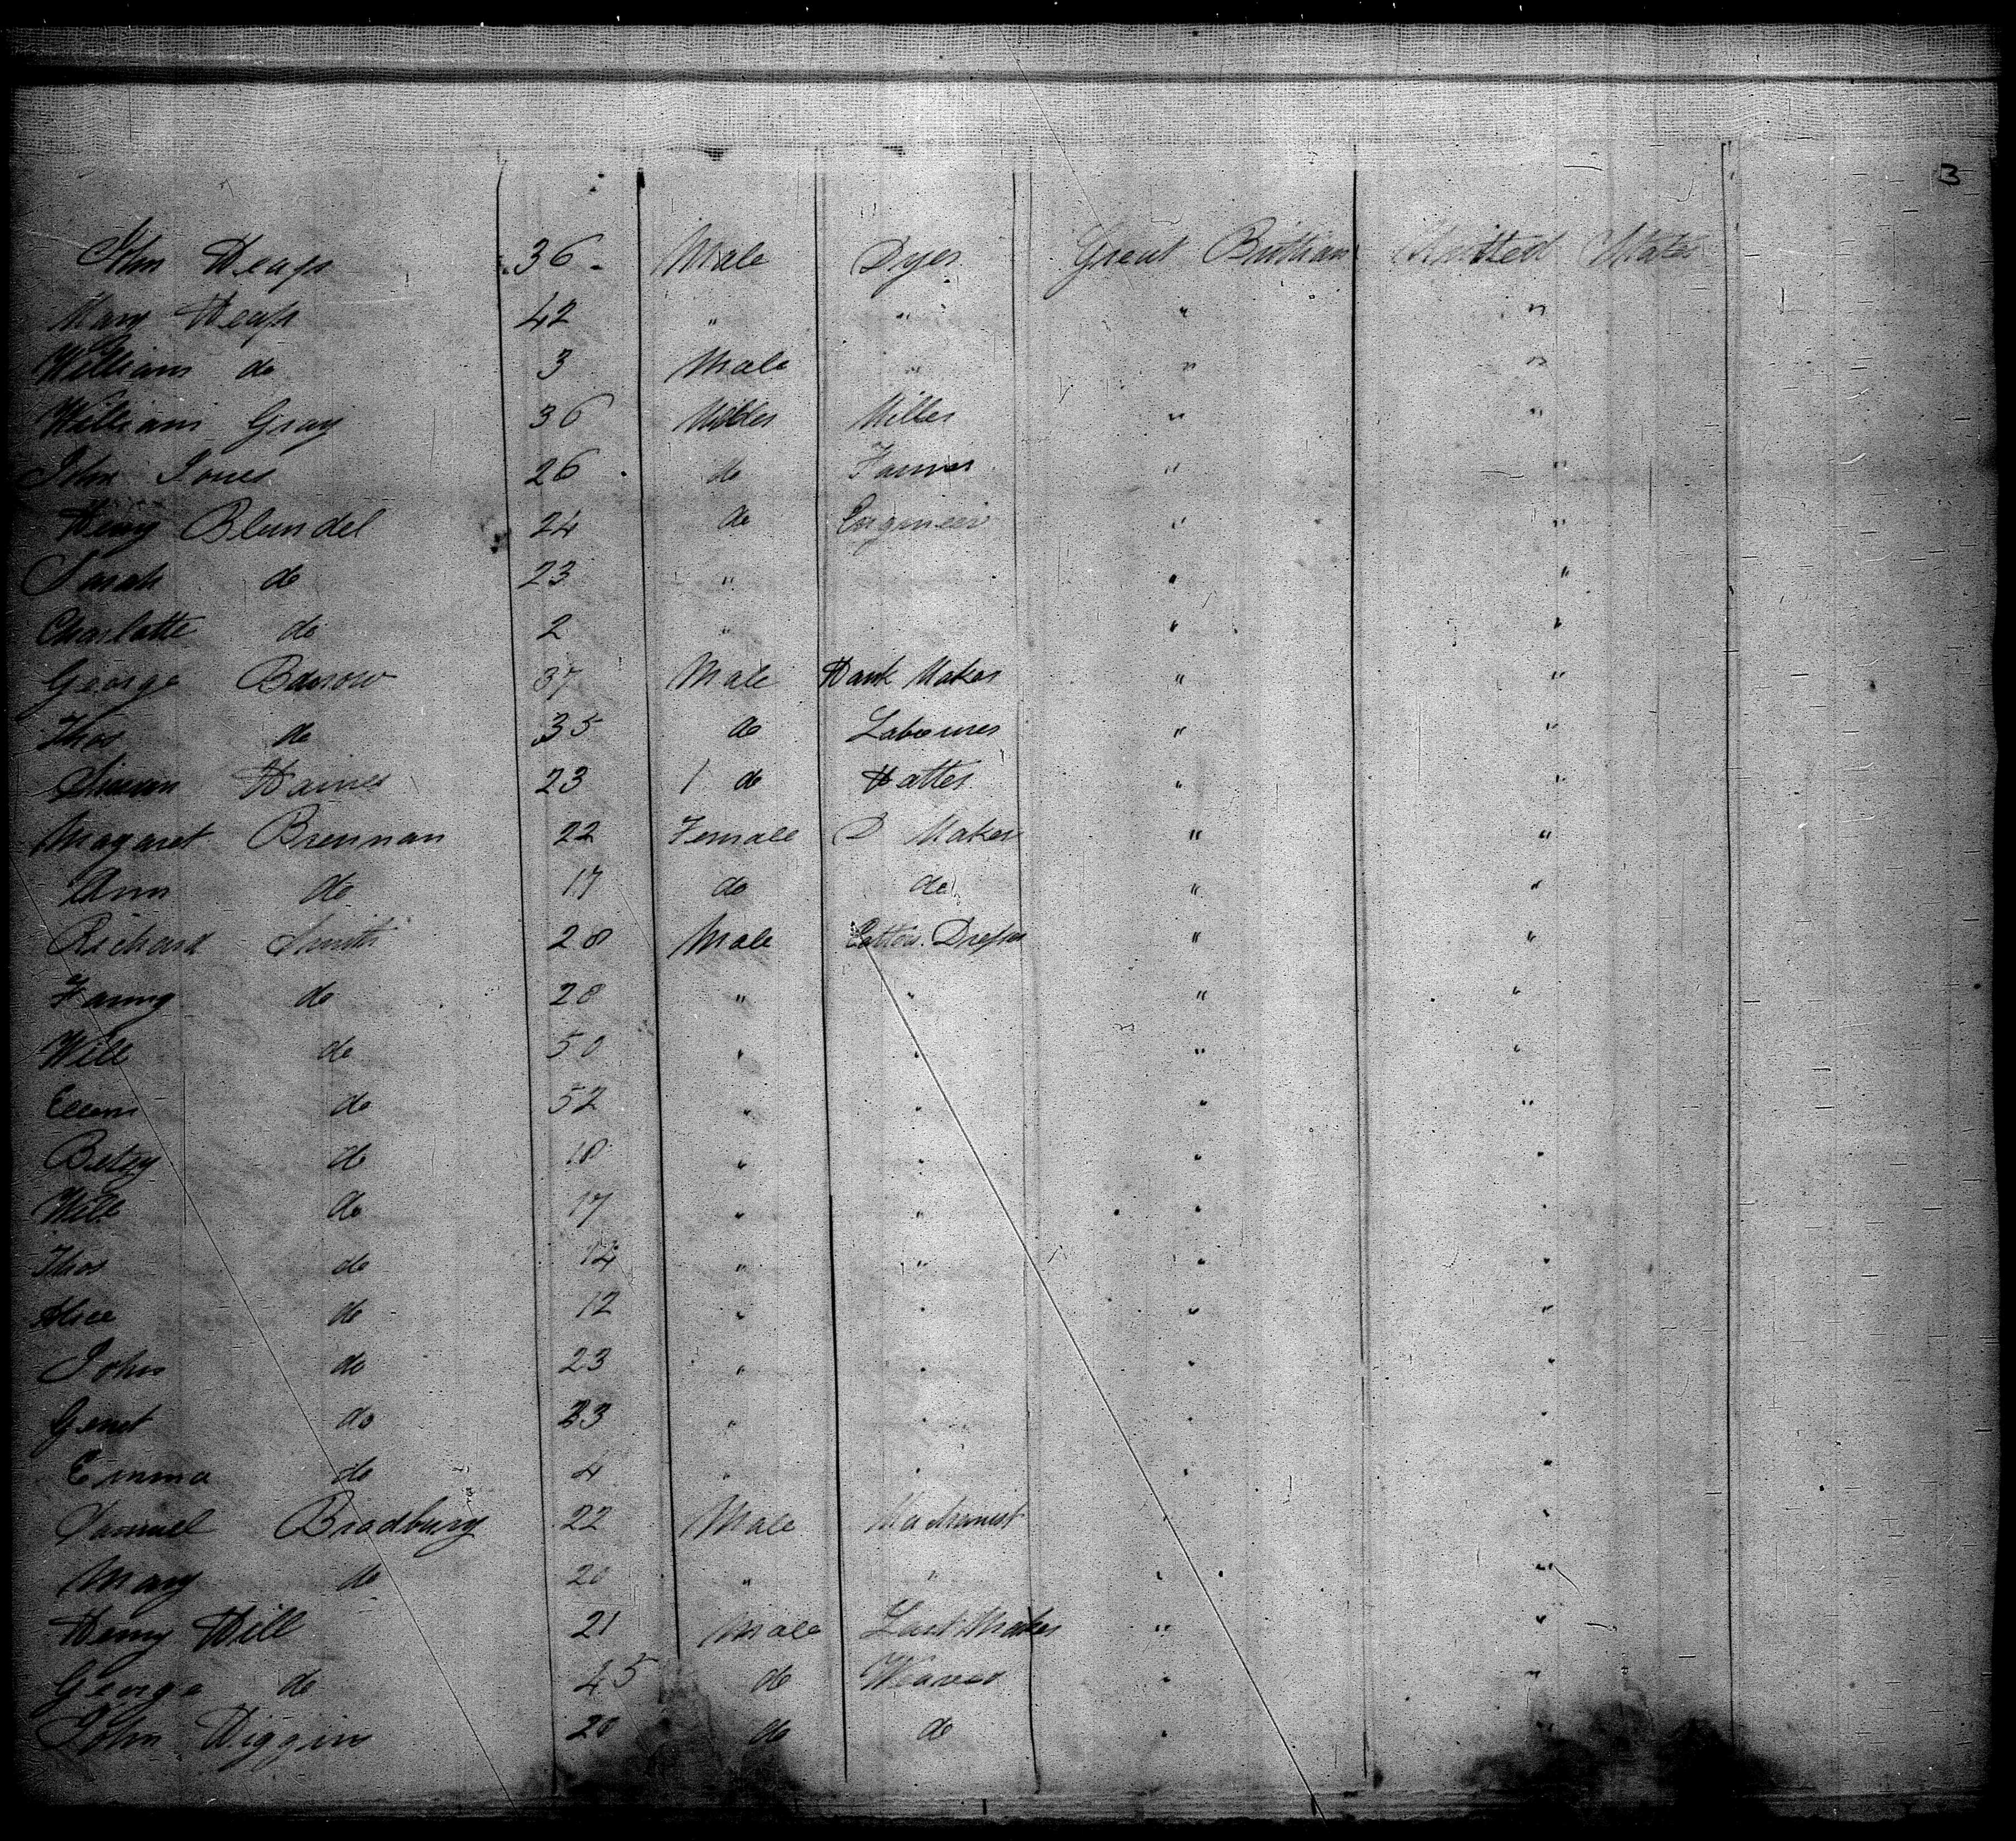 3
John Heaps 36 Male Dyer Great Brittian Unitted States
Mary Heaps 42 " " " "
William do 3 Male " " "
William Gray 36 Miller " "
John Jones 26 do Farmer " "
Henry Blundel 24 do Engineer " "
Sarah do 23 " " "
Charlotte do 2 " " "
George Barrow 37 Male Maker " "
Thos do 35 do Labourer " "
Haines 23 do Hatter " "
Magaret Brennan 22 Female D Maker " "
Ann do 17 do do " "
Richard Smith 28 Male Cotton Dresser " "
Fanny do 28 " " " "
Will do 50 " " " "
Ellen do 52 " " " "
Betsy do 18 " " " "
Will do 17 " " " "
Thos do 14 " " " "
Alice do 12 " " " "
John do 23 " " " "
Genet do 23 " " " "
Emma do 4 " " " "
Samuel Bradbury 22 Male Machanist " "
Mary do 20 " " " "
Henry Hill 21 Male Last Maker " "
George do 45 do Weaver " "
John Higgins 20 do do " "